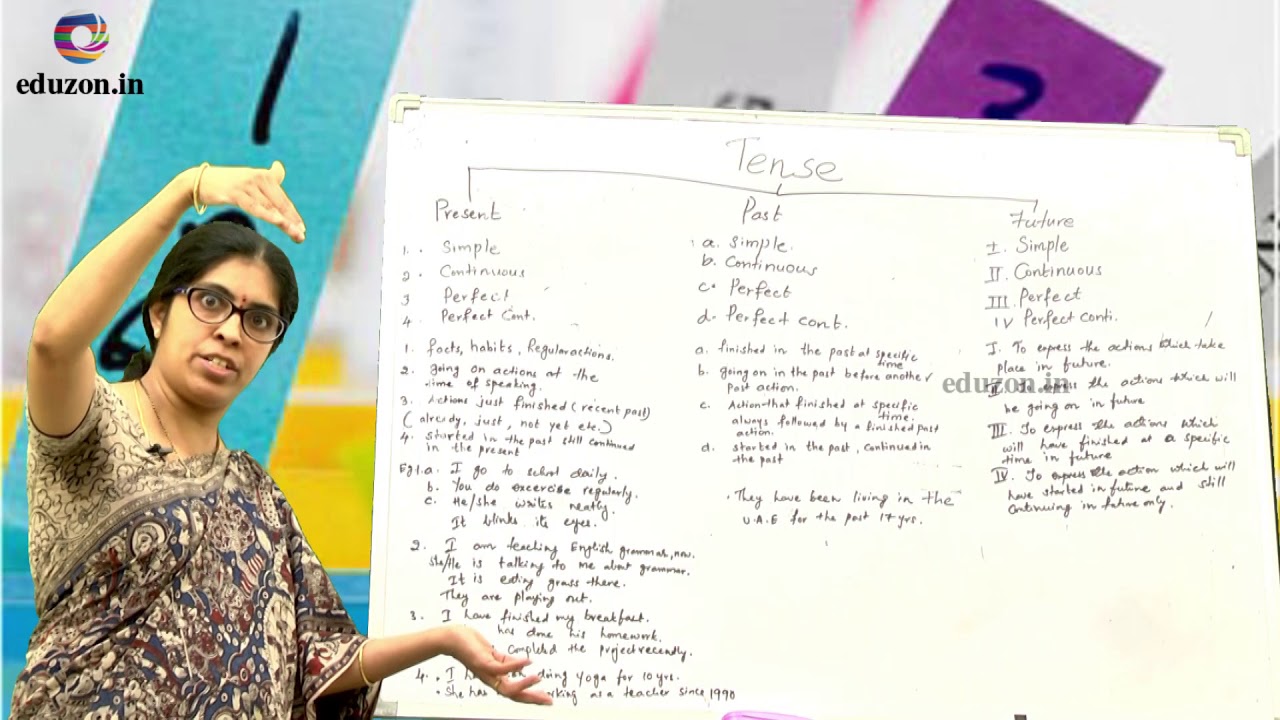 eduzon.in
Tense
Present
1. Simple
2. Continuous
3 Perfect
4. Perfect Cont.
1. facts, habits, Regular actions.
2. going on actions at the
time of speaking.
3. Actions just finished (recent past)
(already, just, not yet etc.)
4. started in the past still continued
in the present
Eg1.a. I go to school daily.
b. You do excercise regularly.
c. He/she writes neatly.
It blinks its eyes.
2. I am teaching English grammar, now.
She/He is talking to me about grammar.
It is eating grass there.
They are playing out.
3. I have finished my breakfast.
has done his homework.
completed the project recently.
4. I doing Yoga for 10 yrs.
She has as a teacher since 1990
Past
a. Simple.
b. Continuous
c. Perfect
d. Perfect cont.
a. finished in the past at specific
time
b. going on in the past before another
past action.
c. Action that finished at specific
time.
always followed by a finished past
action.
d. started in the past, continued in
the past
They have been living in the
U.A.E for the past 17 yrs.
Future
I. Simple
II. Continuous
III. Perfect
IV Perfect conti.
I. To express the actions which take
place in future.
eduzon.in
II. To express the actions which will
be going on in future
III. To express the actions which
will have finished at a specific
time in future
IV. To express the action which will
have started in future and still
continuing in future only.